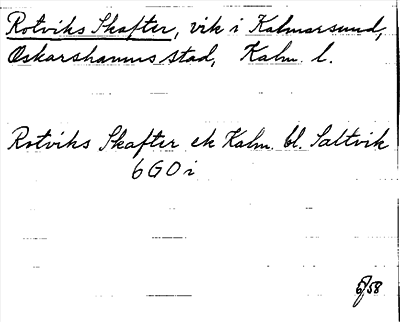 Rotviks Skafter, vik i Kalmarsund,
Oskarshamns stad, Kalm. l.
Rotviks Skafter ek Kalm. bl. Saltvik
6G0i
6/58